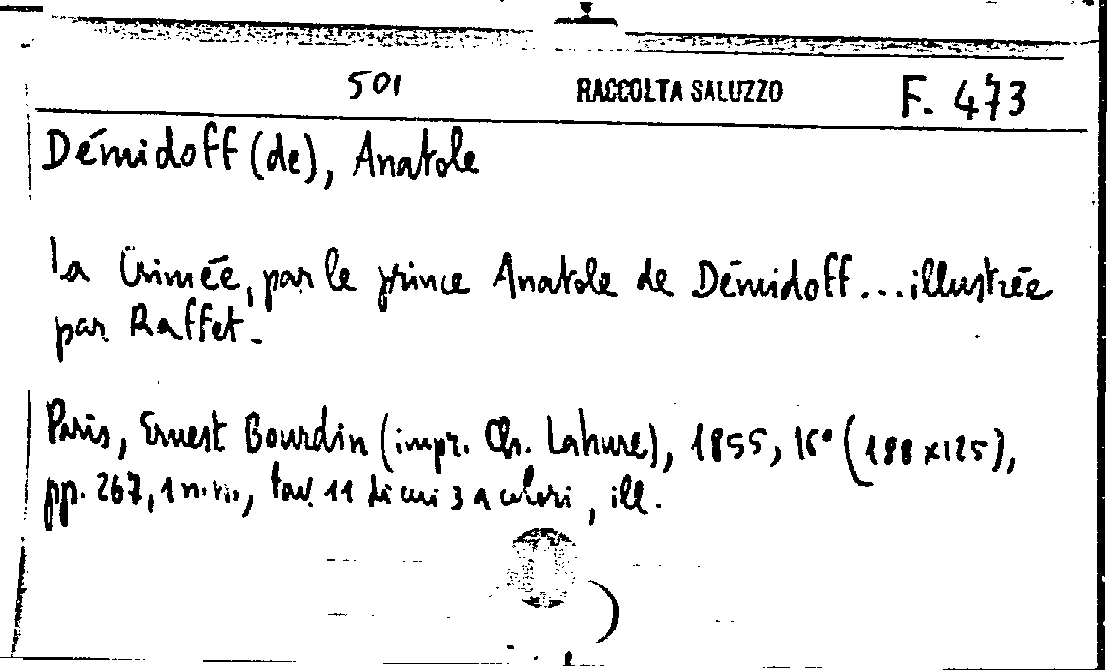 501 RACCOLTA SALUZZO F. 473
Démidoff (de), Anatole
La Crimée, par le prince Anatole de Démidoff...illustrée
par Raffet.
Paris, Ernest Bourdin (impr. Ch. Lahure), 1855, 16° (188x125),
pp. 267, 1 n.n., tav. 11 di cui 3 a colori, ill.